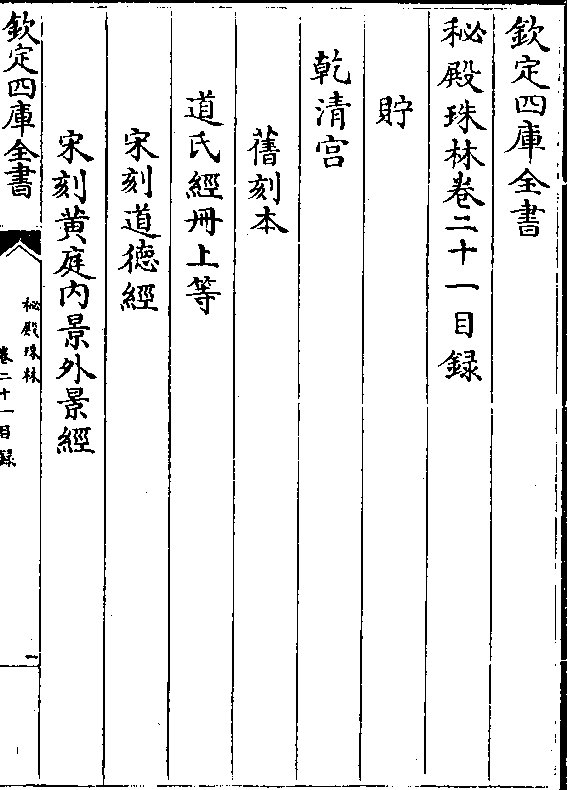 欽定四庫全書
秘殿珠林卷二十一目録
貯
乾清宫
舊刻本
道氏經冊上等
宋刻道德經
宋刻黄庭内景外景經
欽定四庫全書
秘殿珠林
卷二十一目録
一